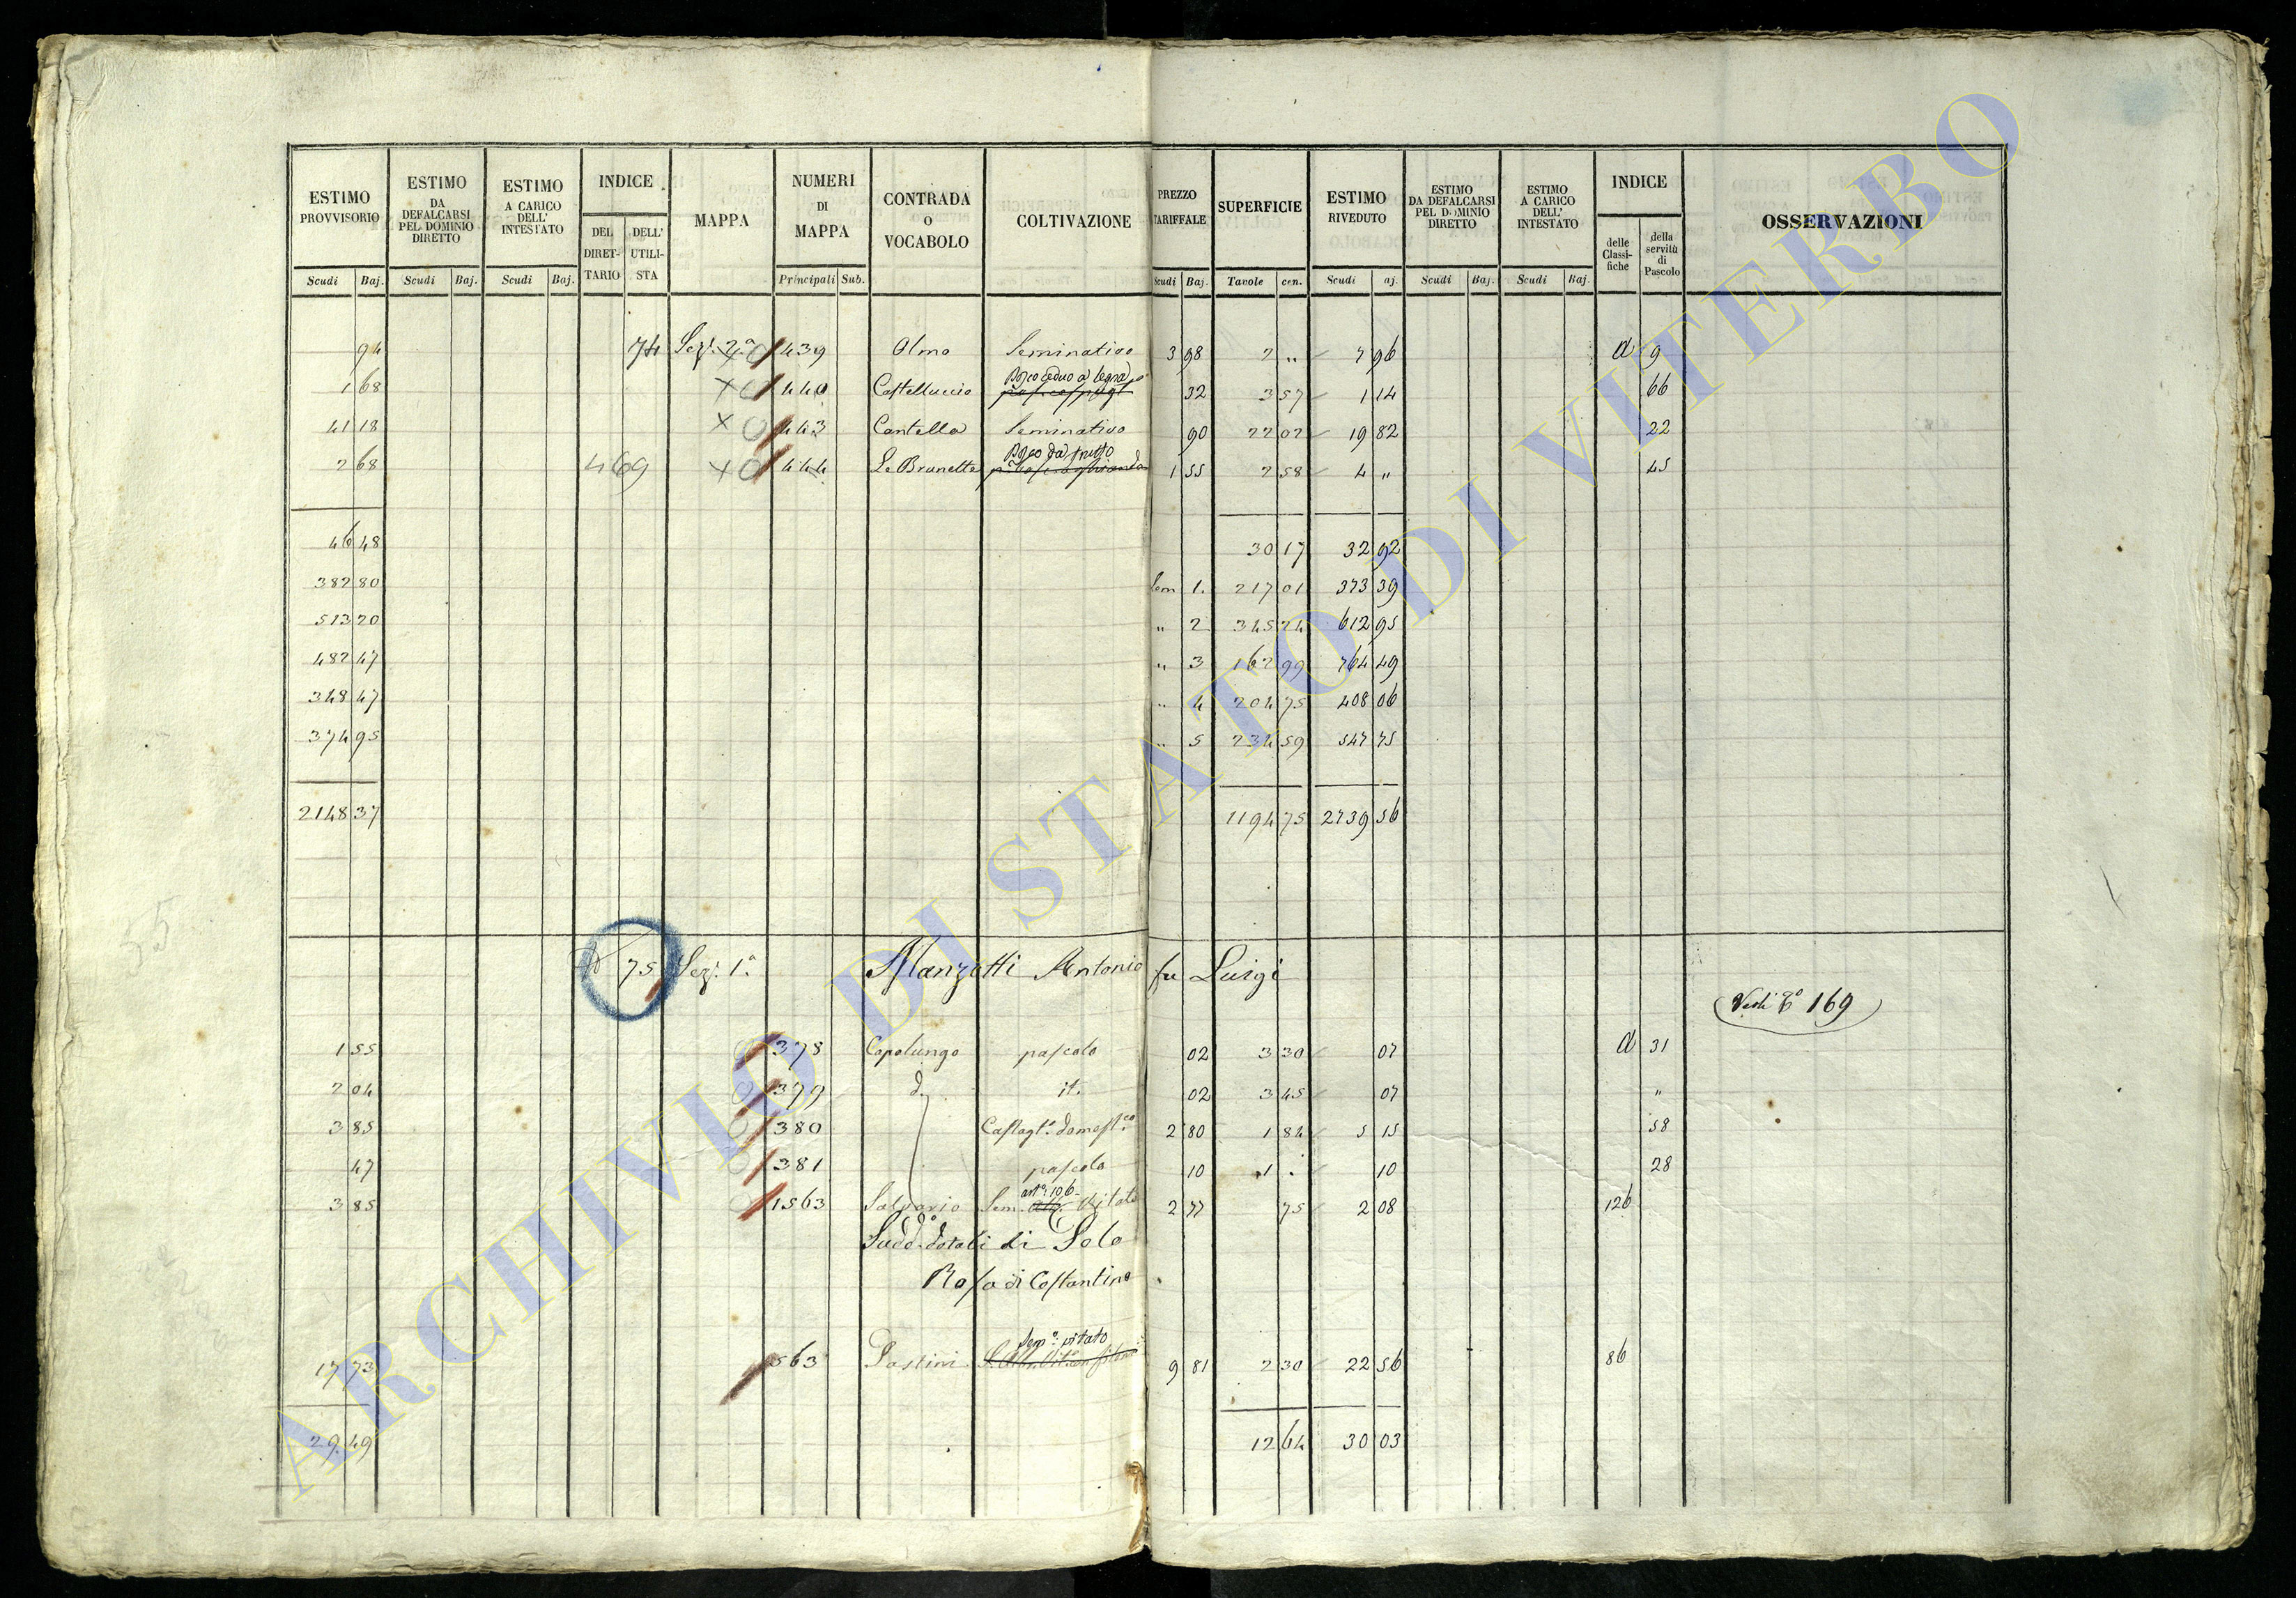 ESTIMO PROVVISORIO | ESTIMO DA DEFALCARSI PEL DOMINIO DIRETTO | ESTIMO A CARICO DELL' INTESTATO | INDICE | MAPPA | NUMERI DI MAPPA | CONTRADA O VOCABOLO | COLTIVAZIONE | PREZZO TARIFFALE | SUPERFICIE | ESTIMO RIVEDUTO | ESTIMO DA DEFALCARSI PEL DOMINIO DIRETTO | ESTIMO A CARICO DELL' INTESTATO | INDICE | OSSERVAZIONI
DEL DIRETTARIO | DELL' UTILISTA | delle Classifiche | della servitù di Pascolo
Scudi | Baj. | Scudi | Baj. | Scudi | Baj. | Principali | Sub. | Scudi | Baj. | Tavole | cen. | Scudi | aj. | Scudi | Baj. | Scudi | Baj.
94 | 74 | Sez. 2.a | 439 | Olmo | Seminativo | 3 98 | 2 „ | 7 96 | d | 9
1 68 | 440 | Castelluccio | Bosco ceduo a legna | 32 | 3 57 | 1 14 | 66
41 18 | 443 | Cantella | Seminativo | 90 | 22 02 | 19 82 | 22
2 68 | 469 | 444 | Le Brunette | Bosco da frutto | 1 55 | 2 58 | 4 „ | 45
46 48 | 30 17 | 32 92
382 80 | Som 1. | 217 01 | 373 39
513 20 | „ 2 | 345 24 | 612 95
482 47 | „ 3 | 162 99 | 764 49
348 47 | „ 4 | 204 75 | 408 06
374 95 | „ 5 | 234 59 | 547 75
2148 37 | 1194 75 | 2739 56
75 | Sez. 1.a | Manzetti Antonio fu Luigi
Vedi 169
1 55 | 378 | Capolungo | pascolo | 02 | 3 30 | 07 | d | 31
2 04 | 379 | d. | it. | 02 | 3 45 | 07 | „
3 85 | 380 | Castagt.o domest.co | 2 80 | 1 84 | 5 15 | 58
47 | 381 | pascolo | 10 | 1 . | 10 | 28
3 85 | 1563 | Salvario | Sem. Vitato | 2 77 | 75 | 2 08 | 126
Sudd. dotali di Polo
Rosa di Costantino
17 73 | 563 | Pastini | Sem.o vitato | 9 81 | 2 30 | 22 56 | 86
29 49 | 12 64 | 30 03
55
ARCHIVIO DI STATO DI VITERBO